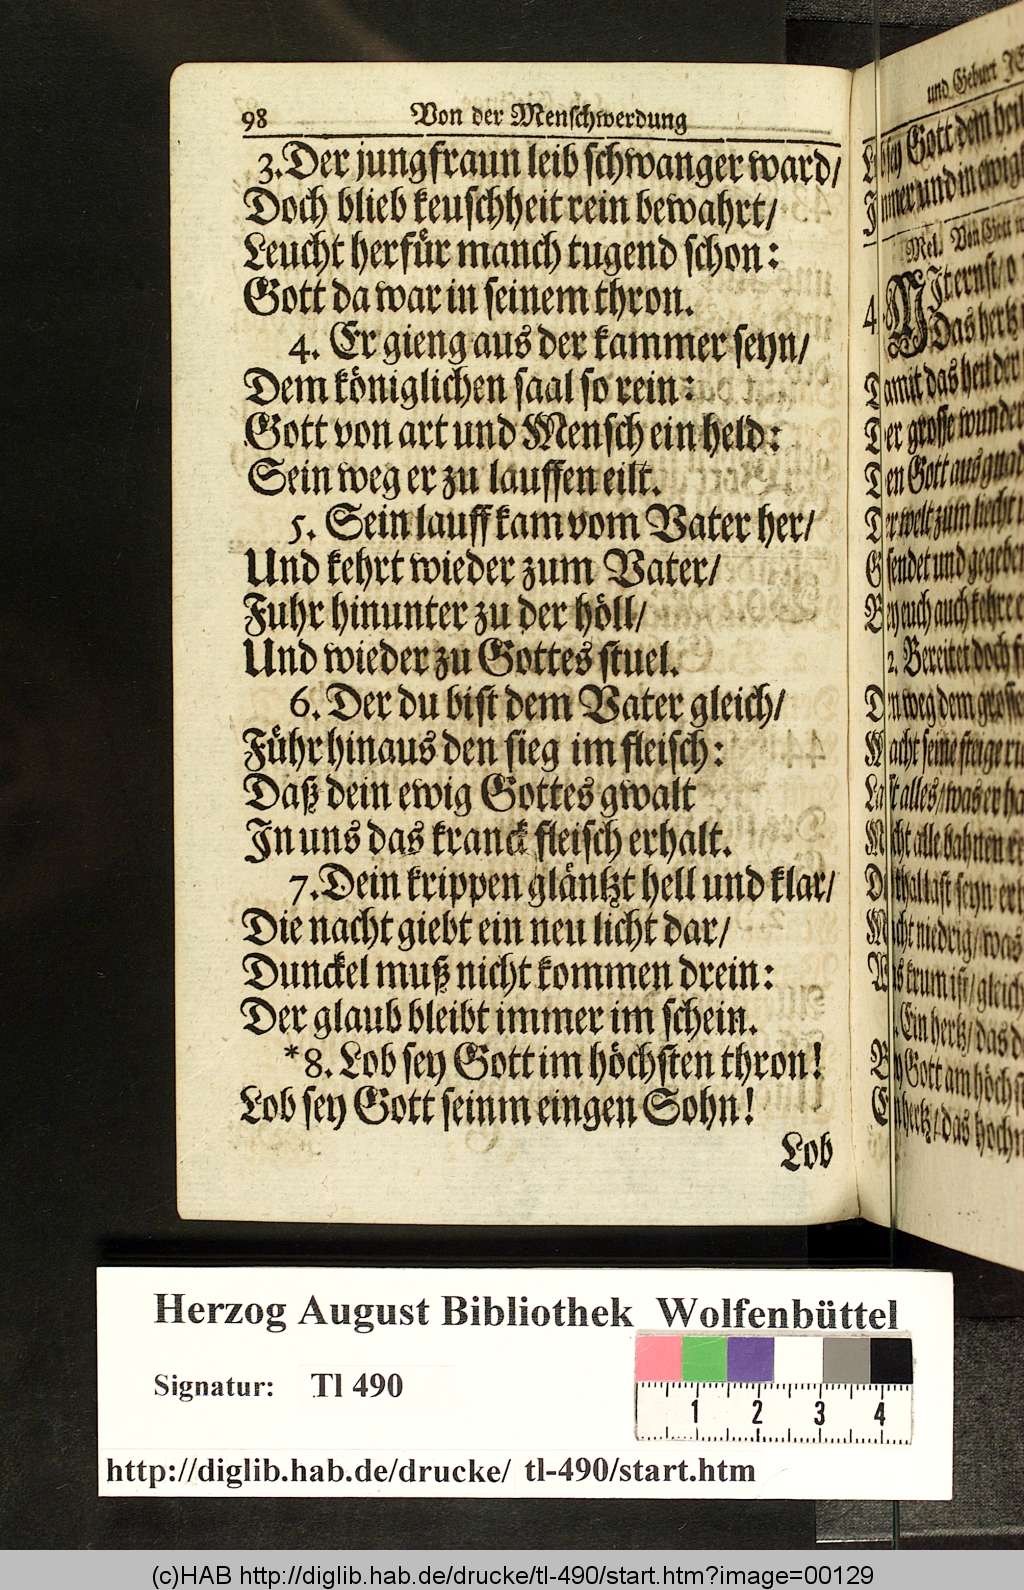 98 Von der Menschwerdung
3. Der jungfraun leib schwanger ward/
Doch blieb keuschheit rein bewahrt/
Leucht herfür manch tugend schon:
Gott da war in seinem thron.
4. Er gieng aus der kammer seyn/
Dem königlichen saal so rein:
Gott von art und Mensch ein held:
Sein weg er zu lauffen eilt.
5. Sein lauff kam vom Vater her/
Und kehrt wieder zum Vater/
Fuhr hinunter zu der höll/
Und wieder zu Gottes stuel.
6. Der du bist dem Vater gleich/
Führ hinaus den sieg im fleisch:
Daß dein ewig Gottes gwalt
In uns das kranck fleisch erhalt.
7. Dein krippen gläntzt hell und klar/
Die nacht giebt ein neu licht dar/
Dunckel muß nicht kommen drein:
Der glaub bleibt immer im schein.
*8. Lob sey Gott im höchsten thron!
Lob sey Gott seinm eingen Sohn!
Lob
und Geburt
sey Gott dem
und in
Mel. Von Gott
4.
Mit ernst/ o
Das hertz
Damit das heil der
Der grosse wunder
Den Gott aus
Der welt zum liecht
Gsendet und gegeben
Bey euch auch kehre
2. Bereitet doch
Den weg dem grossen
Macht seine steige
Last alles/ was er
Macht alle bahnen
Die thal last seyn
Macht niedrig/ was
Was krum ist/ gleich
Ein hertz/ das
Bey Gott am höchst
Ein hertz/ das
Herzog August Bibliothek Wolfenbüttel
Signatur: Tl 490
1 2 3 4
http://diglib.hab.de/drucke/ tl-490/start.htm
(c)HAB http://diglib.hab.de/drucke/tl-490/start.htm?image=00129